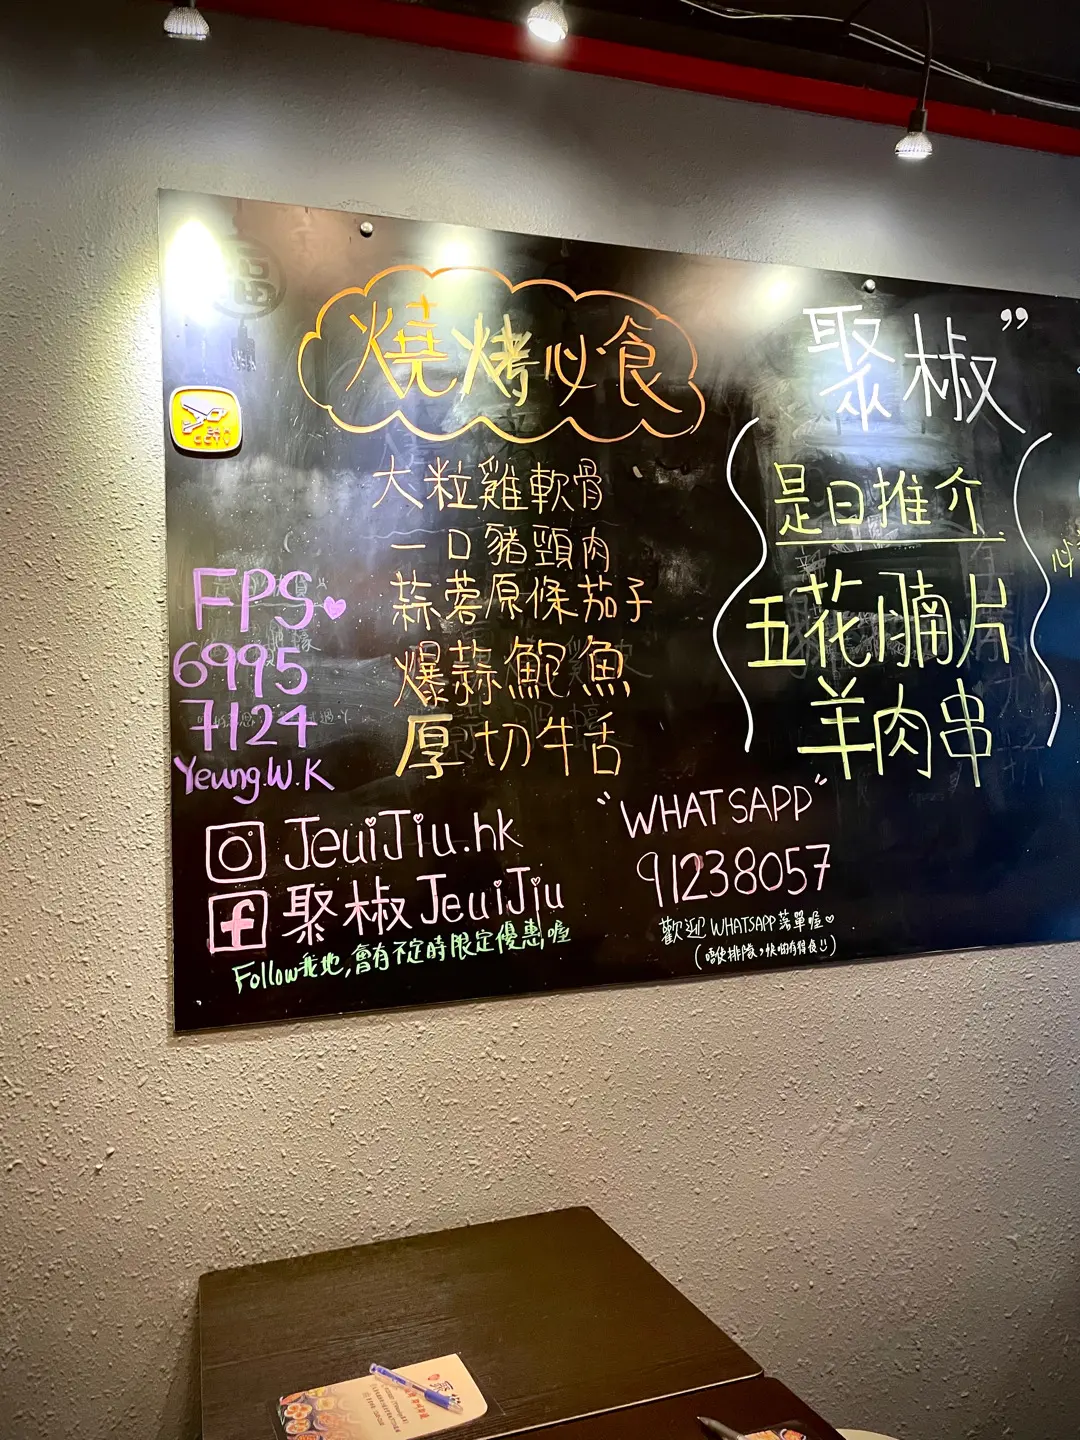 燒烤必食
大粒雞軟骨
一口豬頸肉
蒜蓉原條茄子
爆蒜鮑魚
厚切牛舌
FPS
6995
7124
Yeung.W.K
JeuiJiu.hk
聚椒JeuiJiu
Follow我地,會有不定時限定優惠喔
聚椒"
是日推介
五花腩片
羊肉串
"WHATSAPP"
91238057
歡迎WHATSAPP落單喔